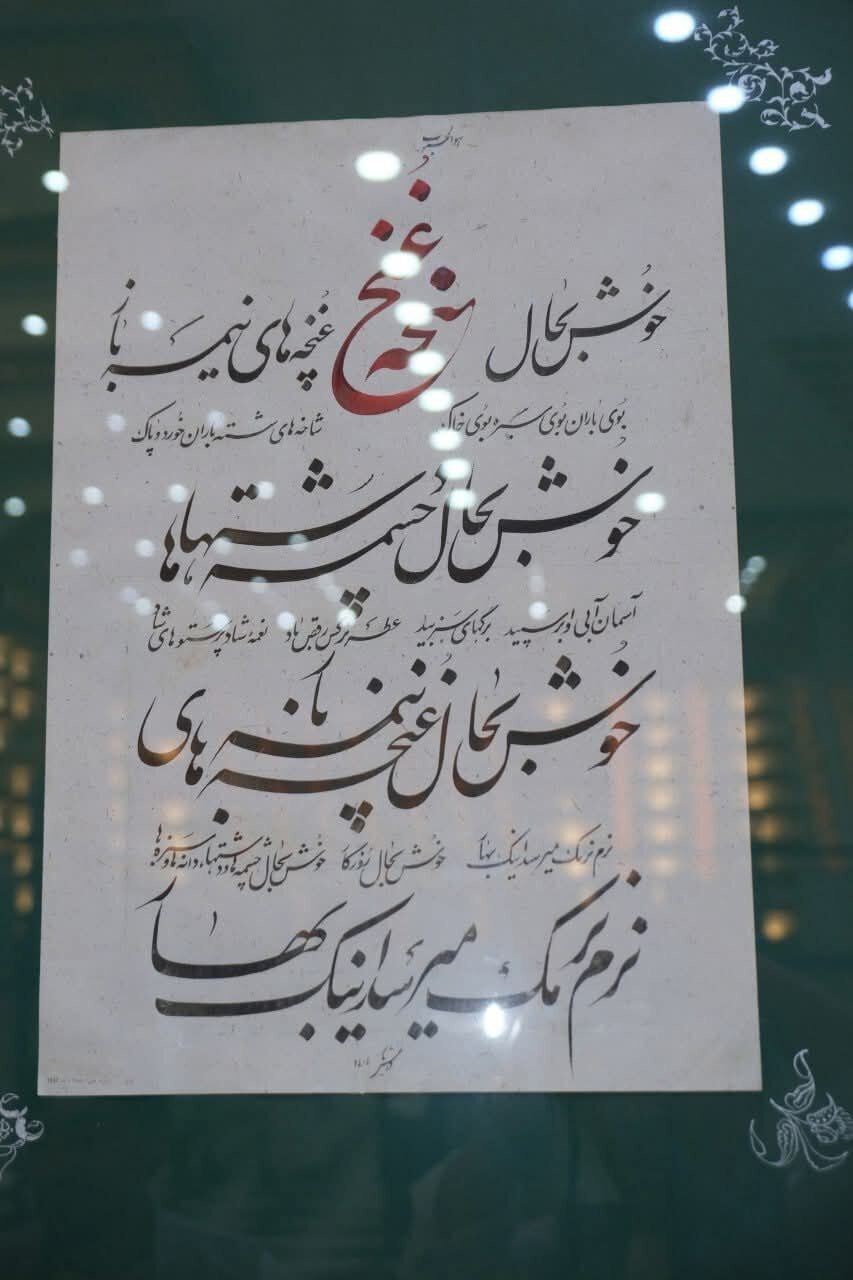 هوالمحبوب
غنچه
خوش بحال غنچه های نیمه باز
بوی باران بوی سبزه بوی خاک
شاخه های شسته باران خورده پاک
خوش بحال چشمه ها دشتها
آسمان آبی و ابر سپید برگهای سبز بید عطر نرگس رقص باد نغمه شاد پرستوهای شاد
خوش بحال غنچه های نیمه باز
نرم نرمک میرسد اینک بهار خوش بحال روزگار خوش بحال چشمه ها و دشتها، دانه ها و سبزه ها
نرم نرمک میرسد اینک بهار